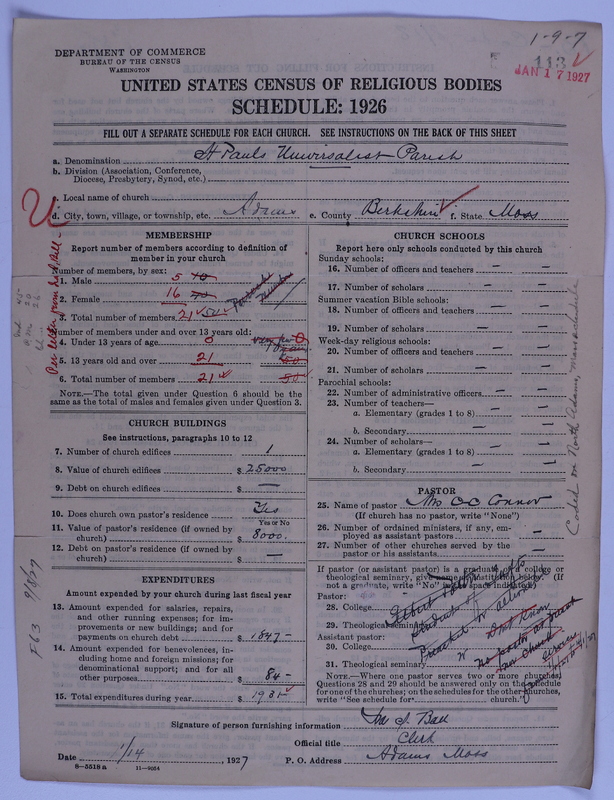 1-9-7
113
JAN 17 1927
DEPARTMENT OF COMMERCE
BUREAU OF THE CENSUS
WASHINGTON
UNITED STATES CENSUS OF RELIGIOUS BODIES
SCHEDULE: 1926
FILL OUT A SEPARATE SCHEDULE FOR EACH CHURCH. SEE INSTRUCTIONS ON THE BACK OF THIS SHEET
a. Denomination St Pauls Universalist Parish
b. Division (Association, Conference,
Diocese, Presbytery, Synod, etc.)
c. Local name of church
d. City, town, village, or township, etc. Adams e. County Berkshire f. State Mass
MEMBERSHIP
Report number of members according to definition of
member in your church
Number of members, by sex:
1. Male 5
2. Female 16
3. Total number of members 21
Number of members under and over 13 years old:
4. Under 13 years of age 0
5. 13 years old and over 21
6. Total number of members 21
NOTE.—The total given under Question 6 should be
the same as the total of males and females given under Question 3.
CHURCH BUILDINGS
See instructions, paragraphs 10 to 12
7. Number of church edifices 1
8. Value of church edifices $ 25000
9. Debt on church edifices $ —
10. Does church own pastor's residence Yes
Yes or No
11. Value of pastor's residence (if owned by
church) $ 8000.
12. Debt on pastor's residence (if owned by
church) $ —
EXPENDITURES
Amount expended by your church during last fiscal year
13. Amount expended for salaries, repairs,
and other running expenses; for im-
provements or new buildings; and for
payments on church debt $ 1847-
14. Amount expended for benevolences, in-
cluding home and foreign missions; for
denominational support; and for all
other purposes $ 84-
15. Total expenditures during year $ 1931-
CHURCH SCHOOLS
Report here only schools conducted by this church
Sunday schools:
16. Number of officers and teachers — —
17. Number of scholars — —
Summer vacation Bible schools:
18. Number of officers and teachers — —
19. Number of scholars — —
Week-day religious schools:
20. Number of officers and teachers — —
21. Number of scholars — —
Parochial schools:
22. Number of administrative officers — —
23. Number of teachers—
a. Elementary (grades 1 to 8) — —
b. Secondary — —
24. Number of scholars—
a. Elementary (grades 1 to 8) — —
b. Secondary — —
PASTOR
25. Name of pastor Mrs O C Connor
(If church has no pastor, write "None")
26. Number of ordained ministers, if any, em-
ployed as assistant pastors —
27. Number of other churches served by the
pastor or his assistants —
If pastor (or assistant pastor) is a graduate of college or
theological seminary, give name of institution below. (If
not a graduate, write "No" in the space indicated)
Pastor:
28. College
29. Theological seminary
Assistant pastor:
30. College
31. Theological seminary
NOTE.—Where one pastor serves two or more churches,
Questions 28 and 29 should be answered only on the schedule
for one of the churches; on the schedules for the other churches,
write "See schedule for church."
Coded on North Adams, Mass schedule
Signature of person furnishing information M J Ball
Official title Clerk
Date 1/14, 1927 P. O. Address Adams Mass
8—5518 a 11—9054